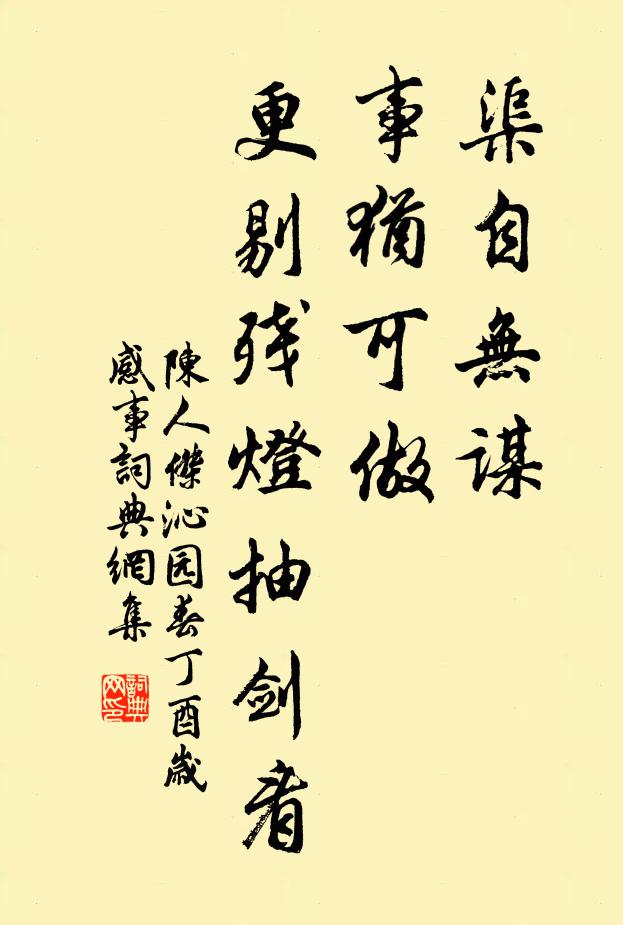 渠自無謀
事猶可做
更剔残燈抽剑看
陳人傑沁园春丁酉歲
感事詞典網集
詞典
网印